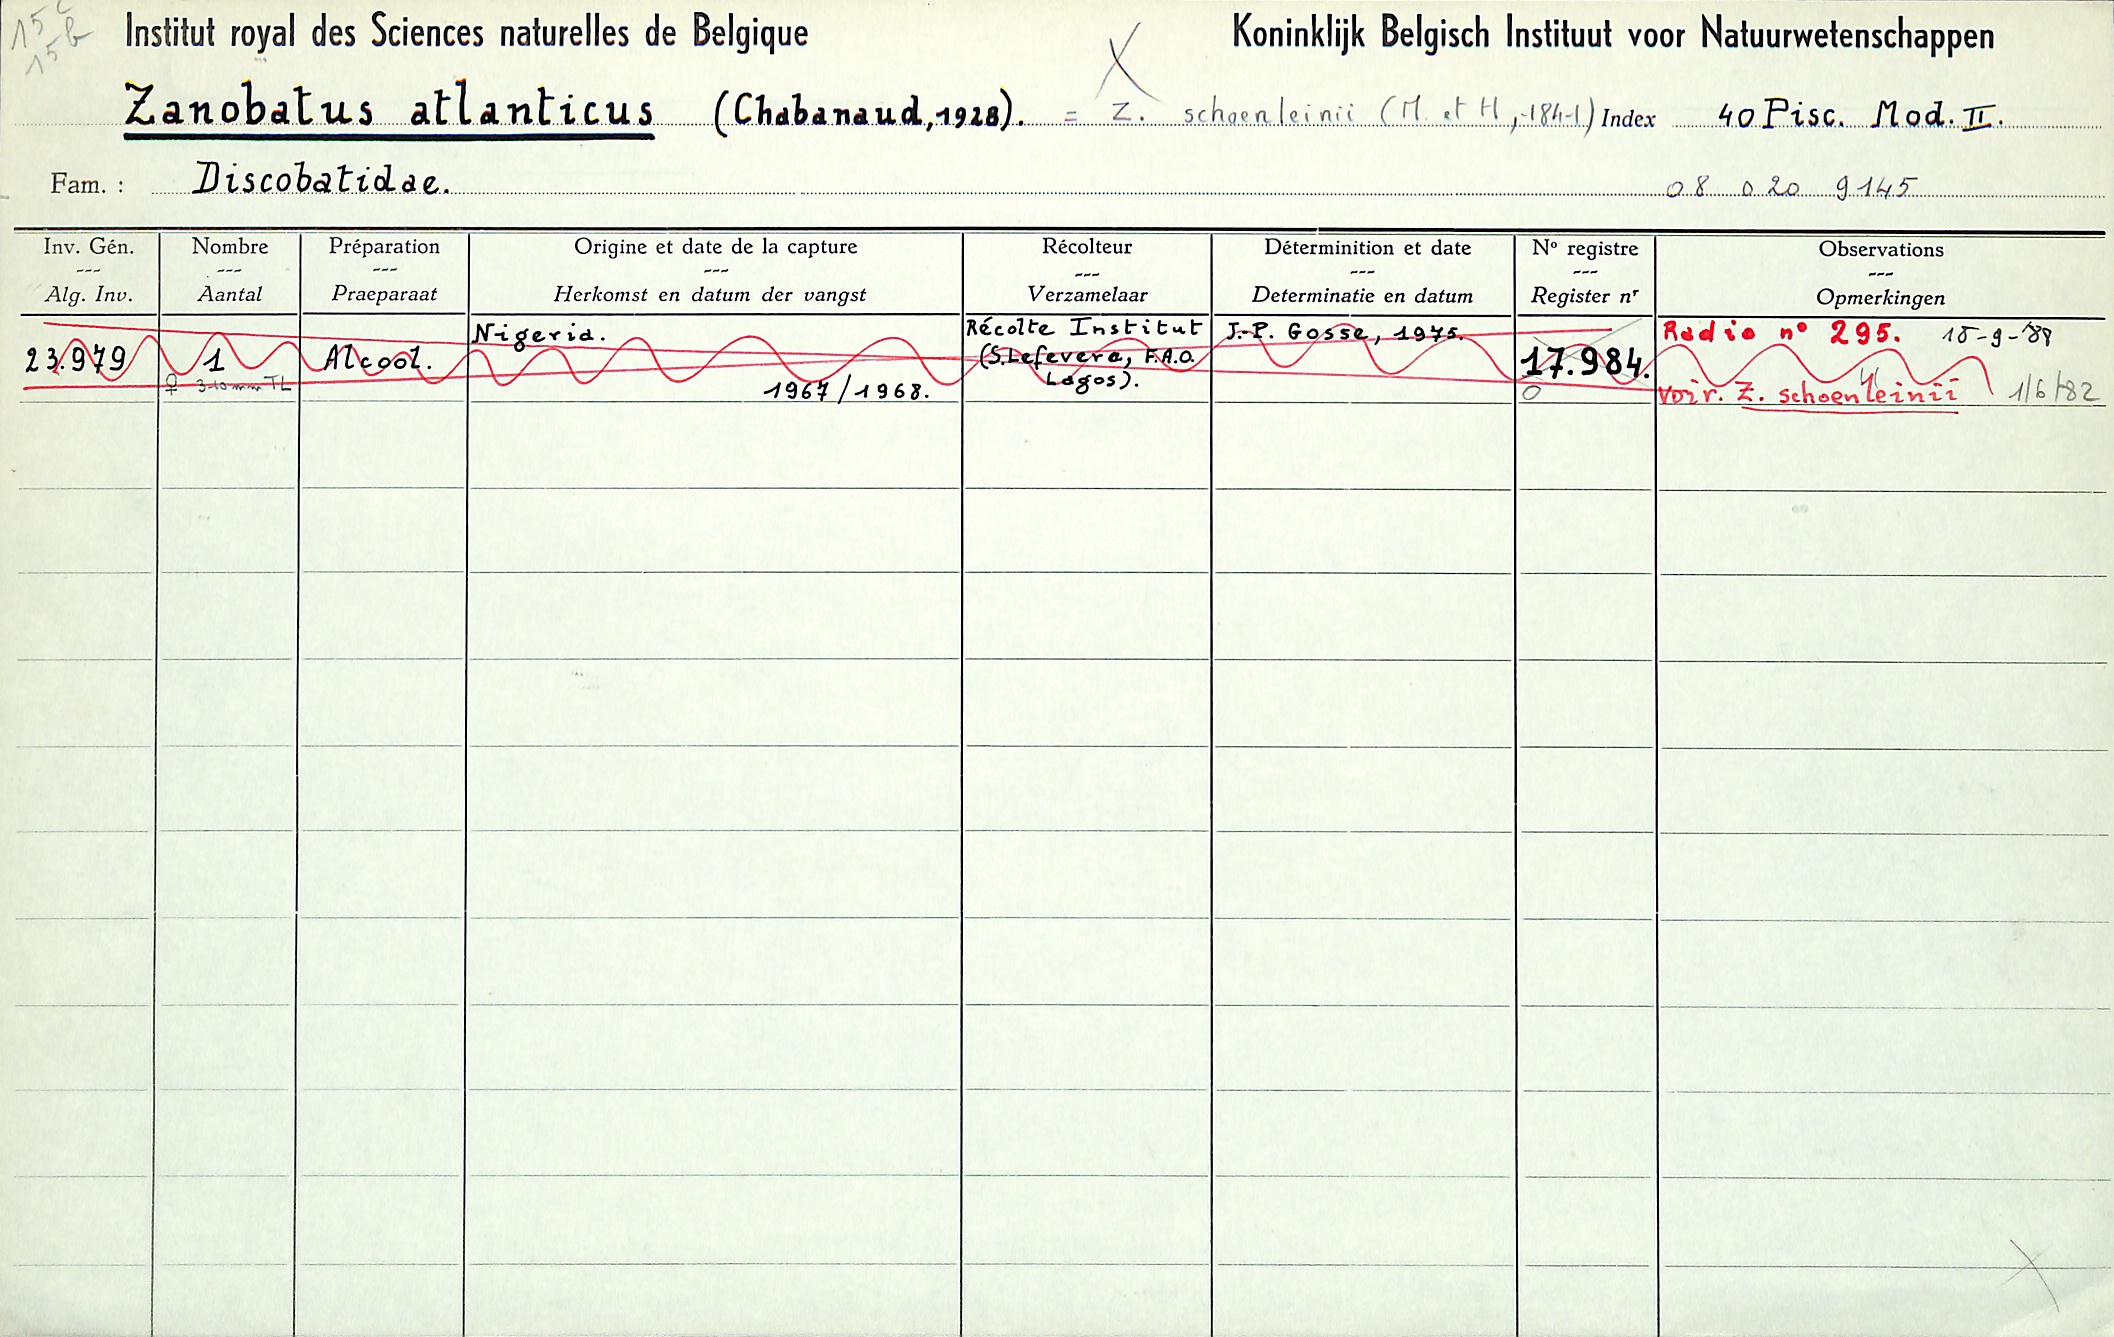 15 c
15 b
Institut royal des Sciences naturelles de Belgique
Koninklijk Belgisch Instituut voor Natuurwetenschappen
Zanobatus atlanticus (Chabanaud, 1928). = Z. schoenleinii (M. et H, 1841) Index 40 Pisc. Mod. II.
Fam. : Discobatidae. 08 020 9145
Inv. Gén. Nombre Préparation Origine et date de la capture Récolteur Déterminition et date Nº registre Observations
Alg. Inv. Aantal Praeparaat Herkomst en datum der vangst Verzamelaar Determinatie en datum Register nr Opmerkingen
Nigeria. Récolte Institut J.-P. Gosse, 1975. Radio nº 295. 15-9-'88
23.979 1 Alcool. (S. Lefevere, F.A.O. 17.984.
♀ 310 mm TL 1967/1968. Lagos). 0 voir. Z. schoenleinii 1/6/82